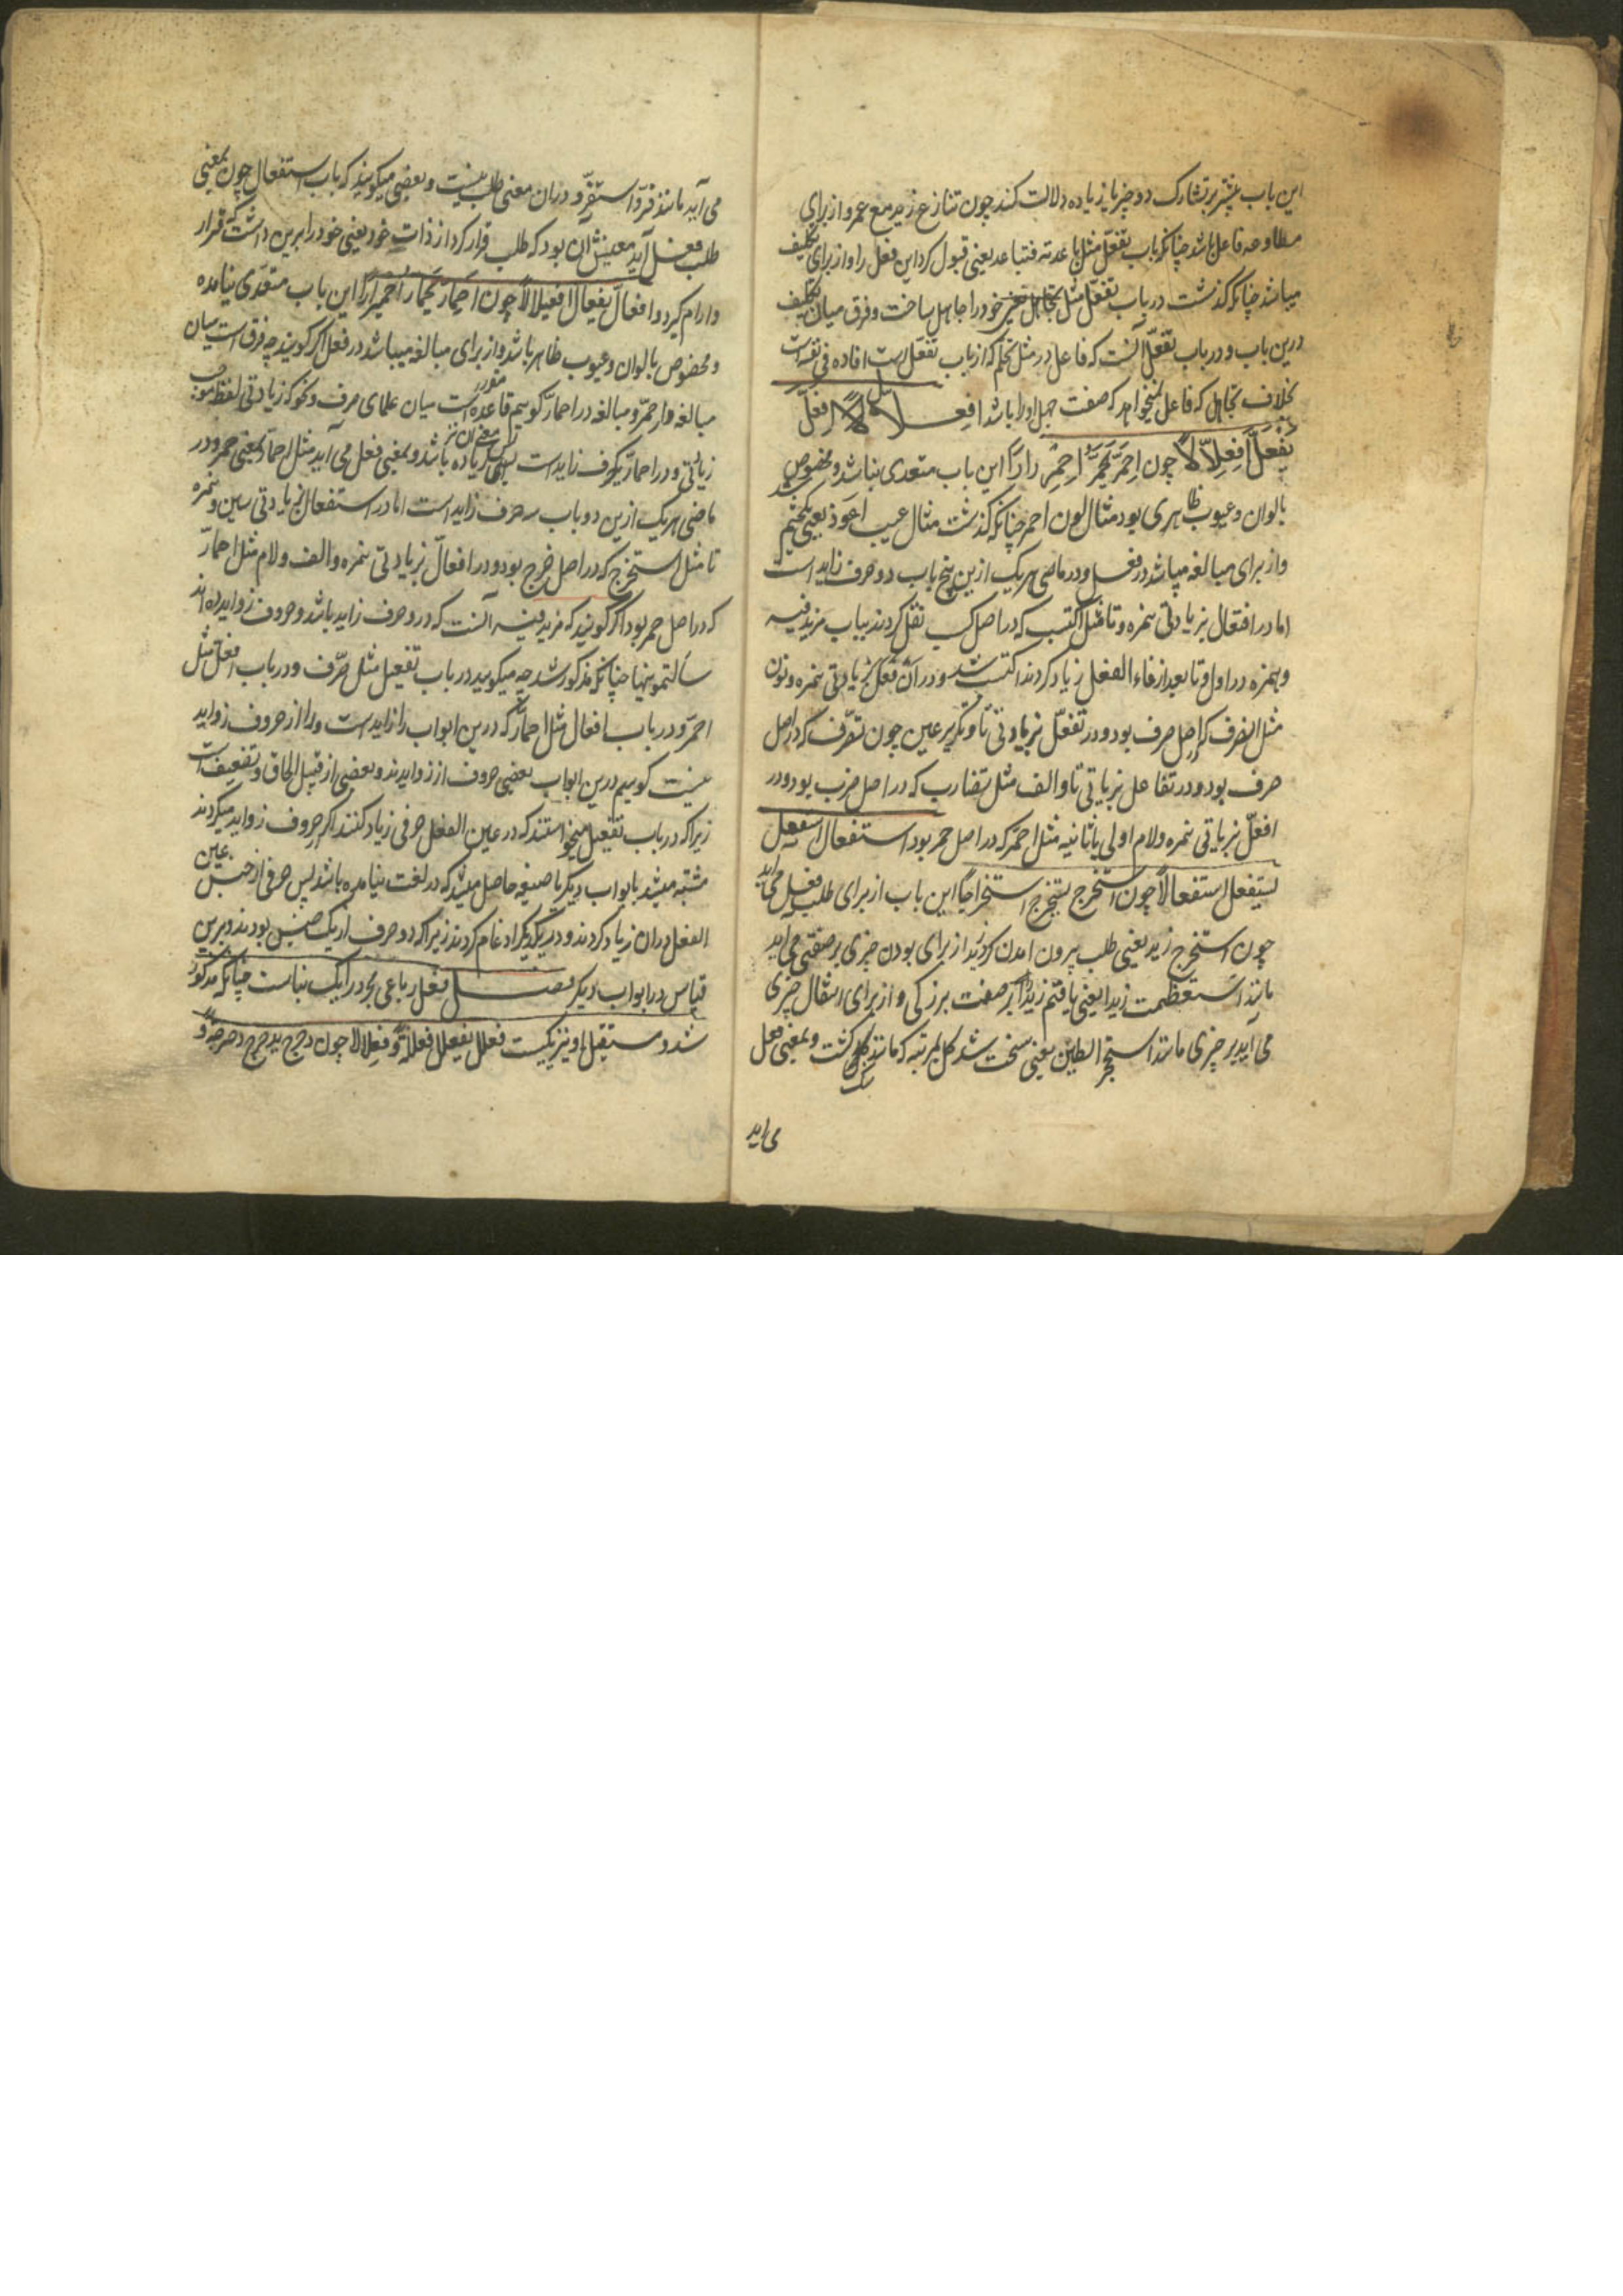 این باب بیشتر بر تشارک دو چیز یا زیاده دلالت کند چون تنازع زید مع عمرو از برای
مطاوعه فاعل باشد چنانکه باب تفعّل مثل باعدته فتباعد یعنی قبول کرد این فعل را و از برای تکلیف
میباشد چنانکه گذشت در باب تفعّل مثل تجاهل یعنی خود را جاهل ساخت و فرق میان تکلیف
درین باب و در باب تفعّل آنست که فاعل در مثل تحلّم که از باب تفعّل است افاده
بخلاف تجاهل که فاعل نمیخواهد که صفت جهل او را باشد افعلّ
یفعلّ افعلالًا چون احمرّ یحمرّ احمرارًا این باب متعدی نباشد و مخصوص
بالوان و عیوب ظاهری بود مثال لون احمر چنانکه گذشت مثال عیب اعوّر یعنی یکچشم شد
و از برای مبالغه میباشد در فعل و در ماضی هر یک ازین پنج باب دو حرف زاید است
اما در افتعال بزیادتی همزه و تا مثل اکتسب که در اصل کسب نقل کردند بباب مزید فیه
و همزه در اول و تا بعد از فاء الفعل زیاد کردند اکتسب شد و در انفعل بزیادتی همزه و نون
مثل انصرف که در اصل صرف بود و در تفعّل بزیادتی تا و تکریر عین چون تصرّف که در اصل
صرف بود و در تفاعل بزیادتی تا و الف مثل تضارب که در اصل ضرب بود و در
افعلّ بزیادتی همزه و لام اولی یا ثانیه مثل احمرّ که در اصل حمر بود استفعال استفعل
یستفعل استفعالًا چون استخرج یستخرج استخراجًا این باب از برای طلب فعل می آید
چون استخرج زید یعنی طلب بیرون آمدن کرد زید از برای بودن چیزی بر صفتی می آید
مانند استعظمت زیدا یعنی یافتم زید را بر صفت بزرگی و از برای انتقال چیزی
می آید بر چیزی مانند استحجر الطین یعنی سخت شد گل بمرتبه که مانند سنگ گشت و بمعنی فعل
می آید
می آید مانند قرّ و استقرّ و در آن معنی طلب نیست و بعضی میگویند که باب استفعال چون بمعنی
طلب فعل آید معینش آن بود که طلب قرار کرد از ذات خود یعنی خود را برین داشت که قرار
و آرام گیرد و افعالّ یفعالّ افعیلالًا چون احمارّ یحمارّ احمیرارًا این باب متعدّی نیامده
و مخصوص بالوان و عیوب ظاهر باشد و از برای مبالغه میباشد در فعل اگر گویند چه فرق است میان
مبالغه در احمرّ و مبالغه در احمارّ گویم قاعده مقرر است میان علمای صرف و نحو که زیادتی لفظ موجب
زیادتی و در احمارّ یکحرف زاید است پس معنی آن نیز زیاده باشد و بمعنی فعل می آید مثل احمارّ بمعنی حمر و در
ماضی هر یک ازین دو باب سه حرف زاید است اما در استفعال بزیادتی سین و همزه
تا مثل استخرج که در اصل خرج بود و در افعالّ بزیادتی همزه و الف و لام مثل احمارّ
که در اصل حمر بود اگر گویند که مزید فیه آنست که درو حرف زاید باشد و حروف زواید ده اند
سألتمونیها چنانکه مذکور شد چه میگویید در باب تفعیل مثل صرّف و در باب افعلّ مثل
احمرّ و در باب افعالّ مثل احمارّ که درین ابواب را زاید است و را از حروف زواید
نیست گوییم درین ابواب بعضی حروف از زوایدند و بعضی از قبیل الحاق و تضعیف است
زیرا که در باب تفعیل میخواستند که در عین الفعل حرفی زیاد کنند اگر حروف زواید میکردند
مشتبه میشد بابواب دیگر یا صیغه حاصل میشد که در لغت نیامده باشد پس حرفی از جنس عین
الفعل در آن زیاد کردند و در یکدیگر ادغام کردند زیرا که دو حرف از یک جنس بودند و برین
قیاس در ابواب دیگر فصل فعل رباعی مجرد را یک بناست چنانکه مذکور
شد و مستقبل او نیز یکیست فعلل یفعلل فعللةً و فعلالا چون دحرج یدحرج دحرجةً و